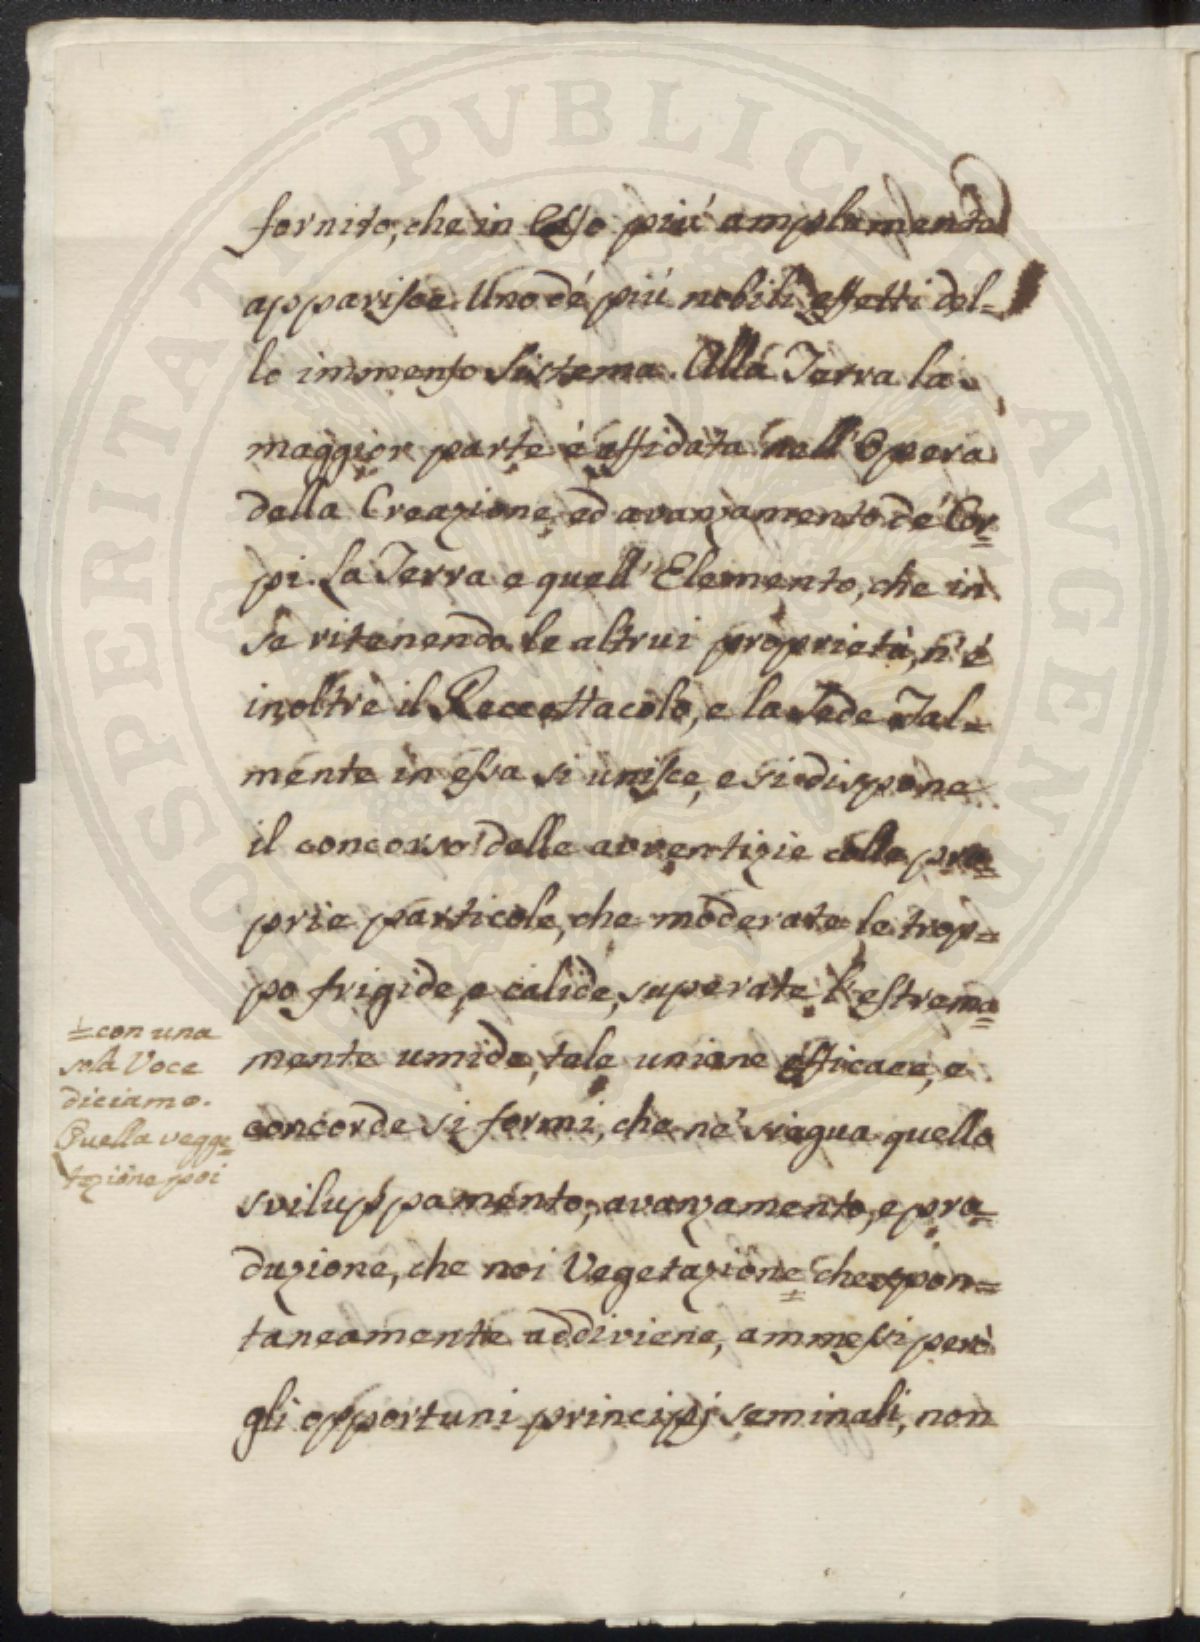 fornito, che in Esso piú amplamente
apparisce. Uno dé piú nobili effetti del-
lo immenso Sistema. Allá Terra la
maggior parte é affidata nell'Opera
della Creazione, ed avanzamento dé Cor=
pi. La Terra e quell'Elemento, che in
se ritenendo le altrui proprietà, n'é
inoltre il Reccettacolo, e la Sede Tal=
mente in essa si unisce, e si dispone
il concorso delle avventizie colle pro=
prie particole, che moderate le trop=
po frigide, e calide, superate l'estrema=
mente umide, tale unione efficace, e
concorde si formi, che ne' siegua quello
sviluppamento, avanzamento, e pro=
duzione, che noi Vegetazione che spon=
taneamente addiviene, ammessi peró
gli opportuni principj seminali, non
= con una
sola Voce
diciamo.
Quella vegge=
tazione poi
PROSPERITATI PUBLICAE AUGENDAE